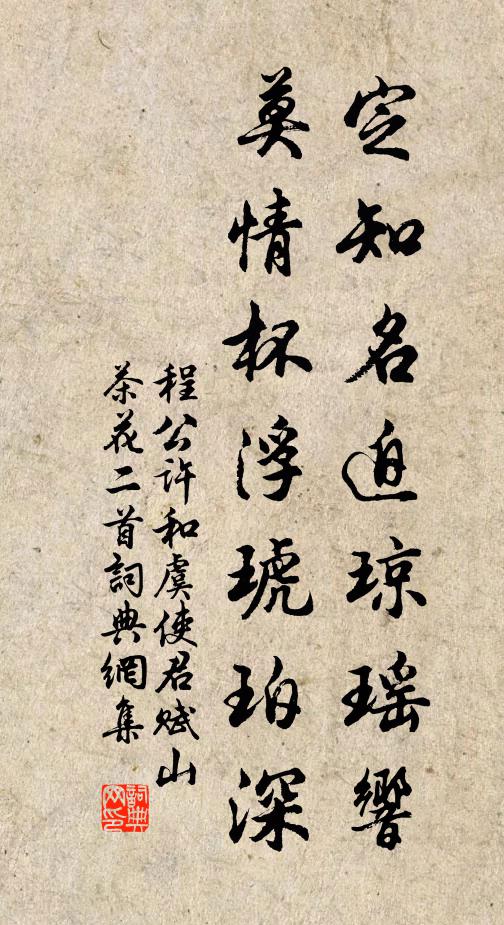 定知名迫琼瑶響
莫情杯浮琥珀深
程公許和虞使君赋山
茶花二首詞典網集
詞典
网印